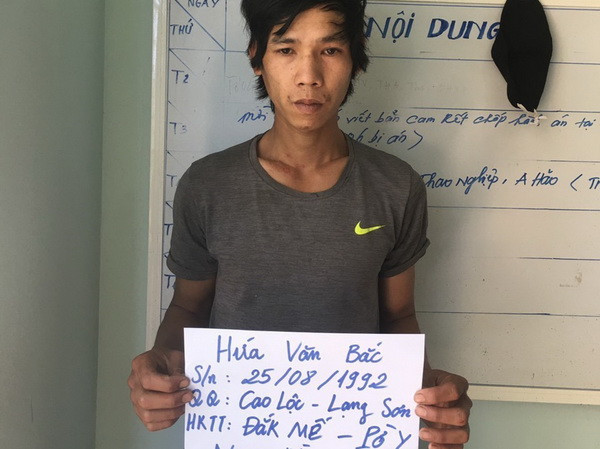 NGÀY
THỨ
NỘI DUNG
T2
viết bản cam kết chấp hành án tại
T3
bị án)
Thao Nghiệp, A Hảo (
Hứa Văn Bắc
S/n: 25/08/1992
QQ: Cao Lộc - Lạng Sơn
HKTT: Đắk Mế - Pờ Y